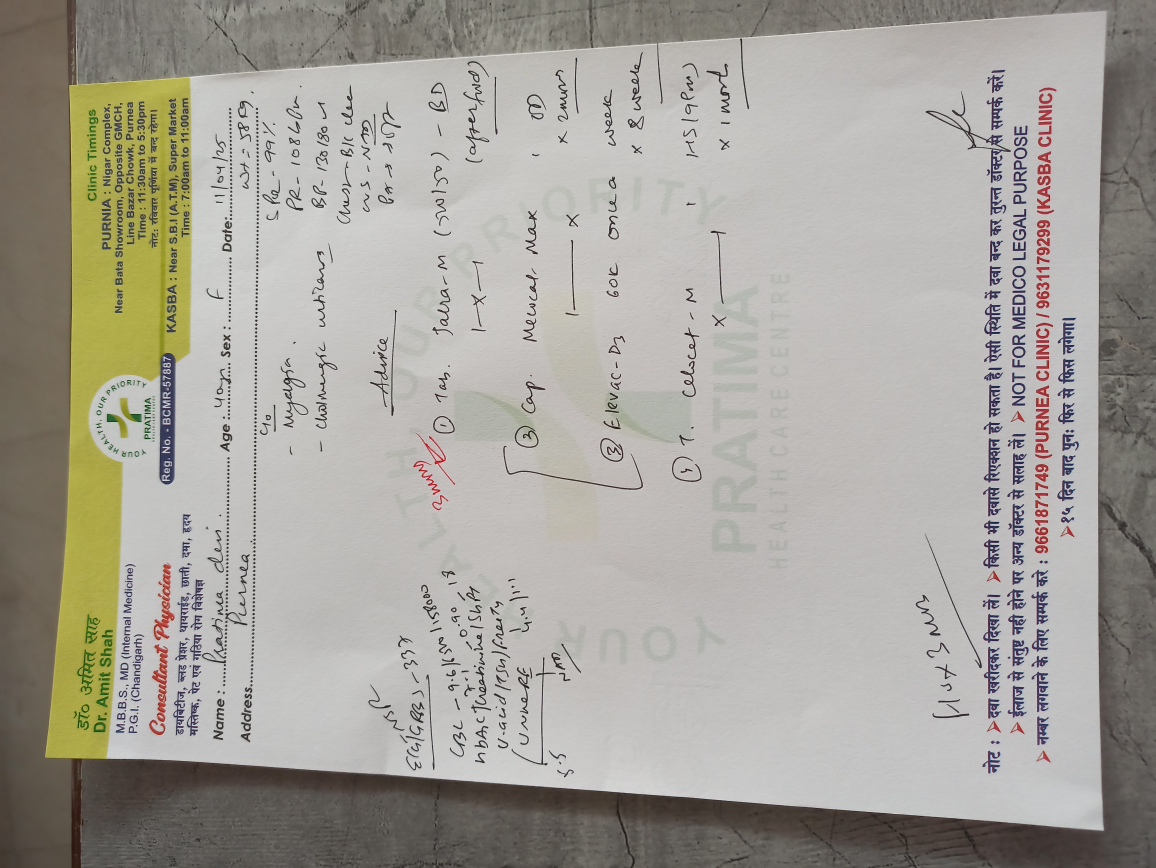 डॉ० अमित साह
Dr. Amit Shah
M.B.B.S., MD (Internal Medicine)
P.G.I. (Chandigarh)
Consultant Physician
डायबिटीज, ब्लड प्रेशर, थायराईड, छाती, दमा, हृदय
मस्तिष्क, पेट एवं गठिया रोग विशेषज्ञ
YOUR HEALTH, OUR PRIORITY
PRATIMA
Reg. No. - BCMR-57887
Clinic Timings
PURNIA : Nigar Complex,
Near Bata Showroom, Opposite GMCH,
Line Bazar Chowk, Purnea
Time : 11:30am to 5:30pm
नोट: रविवार पूर्णिया में बन्द रहेगा।
KASBA : Near S.B.I (A.T.M), Super Market
Time : 7:00am to 11:00am
Name : Pratima devi Age : 40yr Sex : F Date: 11/04/25
Address Purnea Wt = 58 kg.
C/o
- Myalgia.
SPO2 - 99%
PR - 108 b/m
BP - 130/80
Chest - B/L clear
CVS - NAD
- Advice
ECG/GRBS) - 337
CBC - 9.6/6500/158000
HbA1c/Creatinine/SGPT
7.1 0.90 18
U.acid/TSH/Free T4
5.5 4.4 1.11
Urine RE
NAD
① Tab. - M (50/50) - BD
1 - X - 1 (after food)
② Cap. Mecocal Max 1 OD
1 X x 2 mnth
③ Elevac-D3 60K once a week
x 8 week
④ T. - M 1 HS (9pm)
X 1 x 1 month
YOUR HEALTH OUR PRIORITY
PRATIMA
HEALTHCARE CENTRE
नोट : ➤ दवा खरीदकर दिखा लें। ➤ किसी भी दवासे रिएक्शन हो सकता है। ऐसी स्थिति में दवा बन्द कर तुरन्त डॉक्टर से सम्पर्क करें।
➤ ईलाज से संतुष्ट नही होने पर अन्य डॉक्टर से सलाह लें। ➤ NOT FOR MEDICO LEGAL PURPOSE
➤ नम्बर लगवाने के लिए सम्पर्क करे : 9661871749 (PURNEA CLINIC) / 9631179299 (KASBA CLINIC)
➤ १५ दिन बाद पुन: फिर से फिस लगेगा।